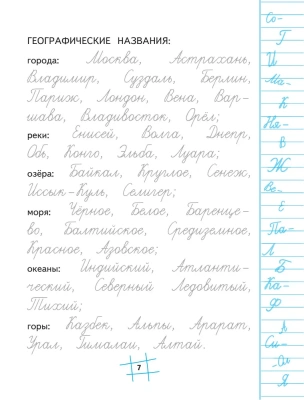 ГЕОГРАФИЧЕСКИЕ НАЗВАНИЯ:
города: Москва, Астрахань,
Владимир, Суздаль, Берлин,
Париж, Лондон, Вена, Вар-
шава, Владивосток, Орёл;
реки: Енисей, Волга, Днепр,
Обь, Конго, Эльба, Луара;
озёра: Байкал, Круглое, Сенеж,
Иссык-Куль, Селигер;
моря: Чёрное, Белое, Баренце-
во, Балтийское, Средиземное,
Красное, Азовское;
океаны: Индийский, Атланти-
ческий, Северный Ледовитый,
Тихий;
горы: Казбек, Альпы, Арарат,
Урал, Гималаи, Алтай.
7
Со-
Г
И
Ма-
К
Ня-
В
Ж
Ве-
Е
Па-
Л
Б
Ка-
Ф
А
Си-
-Оля
Я